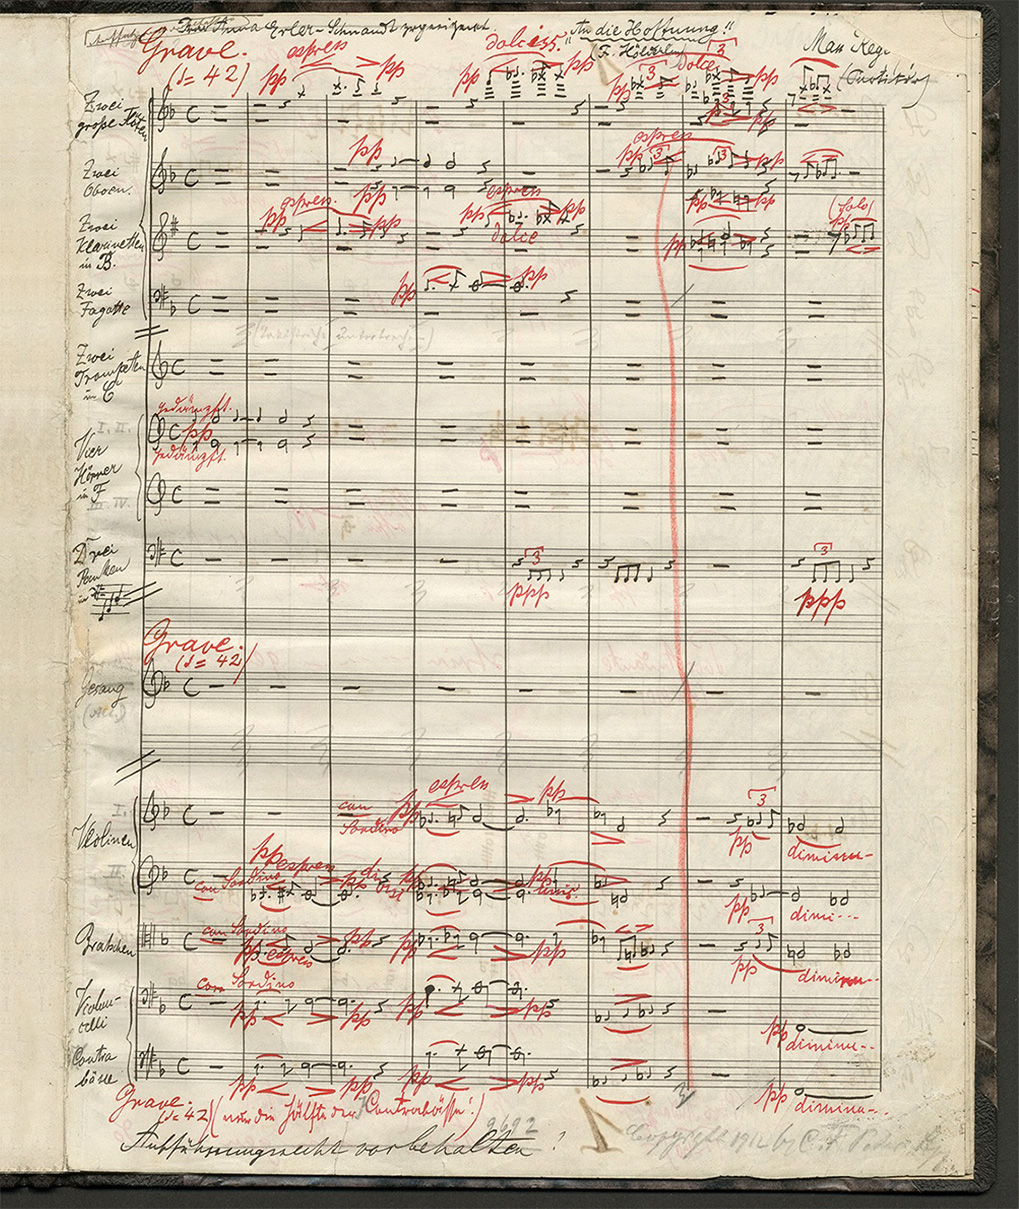 Frau Anna Erler-Schnaudt zugeeignet.
"An die Hoffnung"!!
(F. Hölderlin)
Max Reger
(Partitur)
Grave.
(♩= 42)
espress
pp
pp
dolciss.
pp
pp
dolce
3
3
pp
pp
Zwei
große Flöten
3
pp
pp
Zwei
Oboen.
pp
pp
espress
pp
3
3
pp
pp
pp
Zwei
Klarinetten
in B.
espress.
pp
pp
espress
pp
pp
dolce
pp
(Solo)
pp
Zwei
Fagotte
pp
pp
Zwei
Trompeten
in C
Vier
Hörner
in F
I. II.
gedämpft.
pp
gedämpft.
III. IV.
Drei
Pauken
in
3
ppp
3
ppp
Grave.
(♩= 42)
Gesang
(Alt)
Violinen
I.
con
Sordino
pp
espress
pp
3
pp
diminu-
II
con Sordino
pp espress
pp
pp
pp
dimi---
Bratschen
con Sordino
pp espress
pp
pp
pp
3
pp
diminu--
Violon-
celli
con Sordino
pp
pp
pp
pp
pp
diminu--
Contra
bässe
pp
pp
pp
pp
pp
diminu--
Grave.
♩= 42
(nur die Hälfte der Contrabässe!)
9692
Aufführungsrecht vorbehalten!
1
Copyright 1912 by C. F. Peters